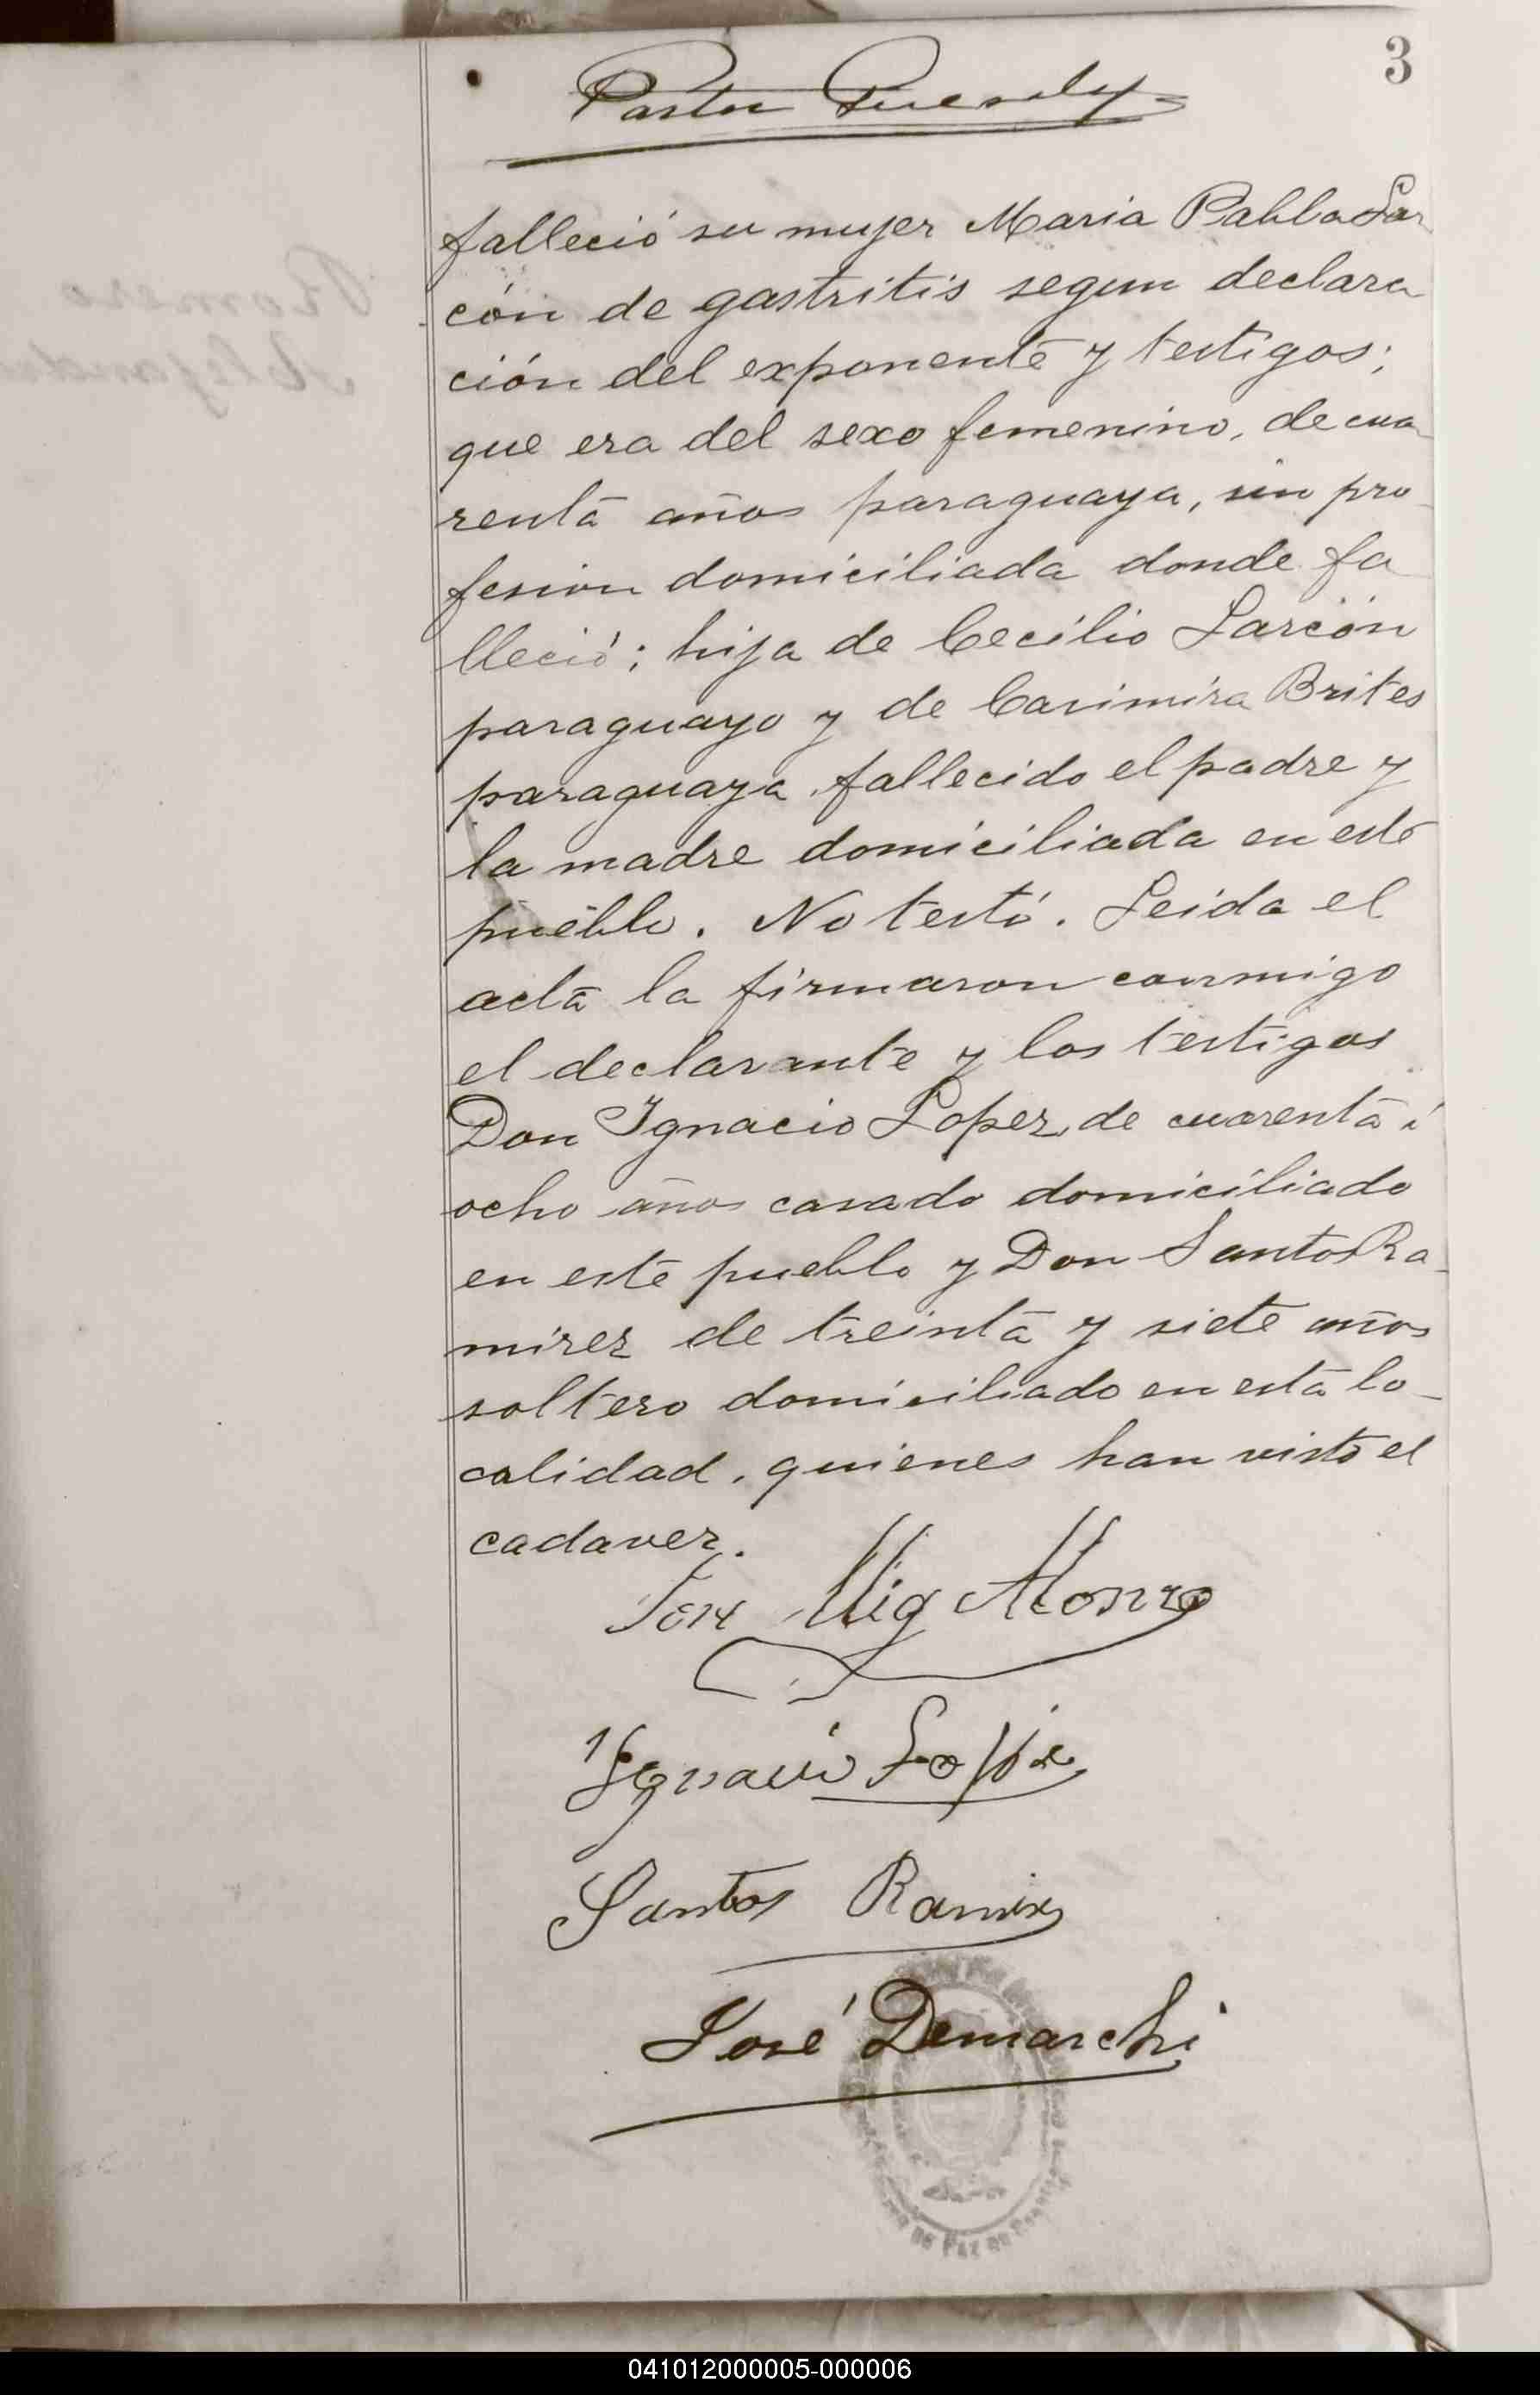 3
Pastor
falleció su mujer Maria Pabla Lar
cón de gastritis segun declara
ción del exponente y testigos;
que era del sexo femenino, de cua
renta años paraguaya, sin pro
fesion domiciliada donde fa
lleció; hija de Cecilio Larcón
paraguayo y de Casimira Brites
paraguaya, fallecido el padre y
la madre domiciliada en este
pueblo. No testó. Leida el
acta la firmaron conmigo
el declarante y los testigos
Don Ignacio Lopez, de cuarenta i
ocho años casado domiciliado
en este pueblo y Don Santos Ra-
mirez de treinta y siete años
soltero domiciliado en esta lo-
calidad, quienes han visto el
cadaver.
Mig Alonzo
Ignacio Lopez
Santos Ramirez
José Demarchi
DE PAZ DE
041012000005-000006